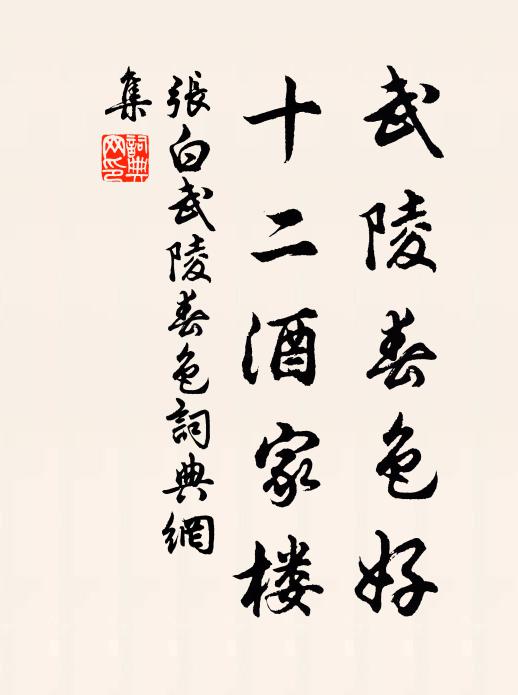 武陵春色好
十二酒家楼
張白武陵春色詞典網
集
詞典网印